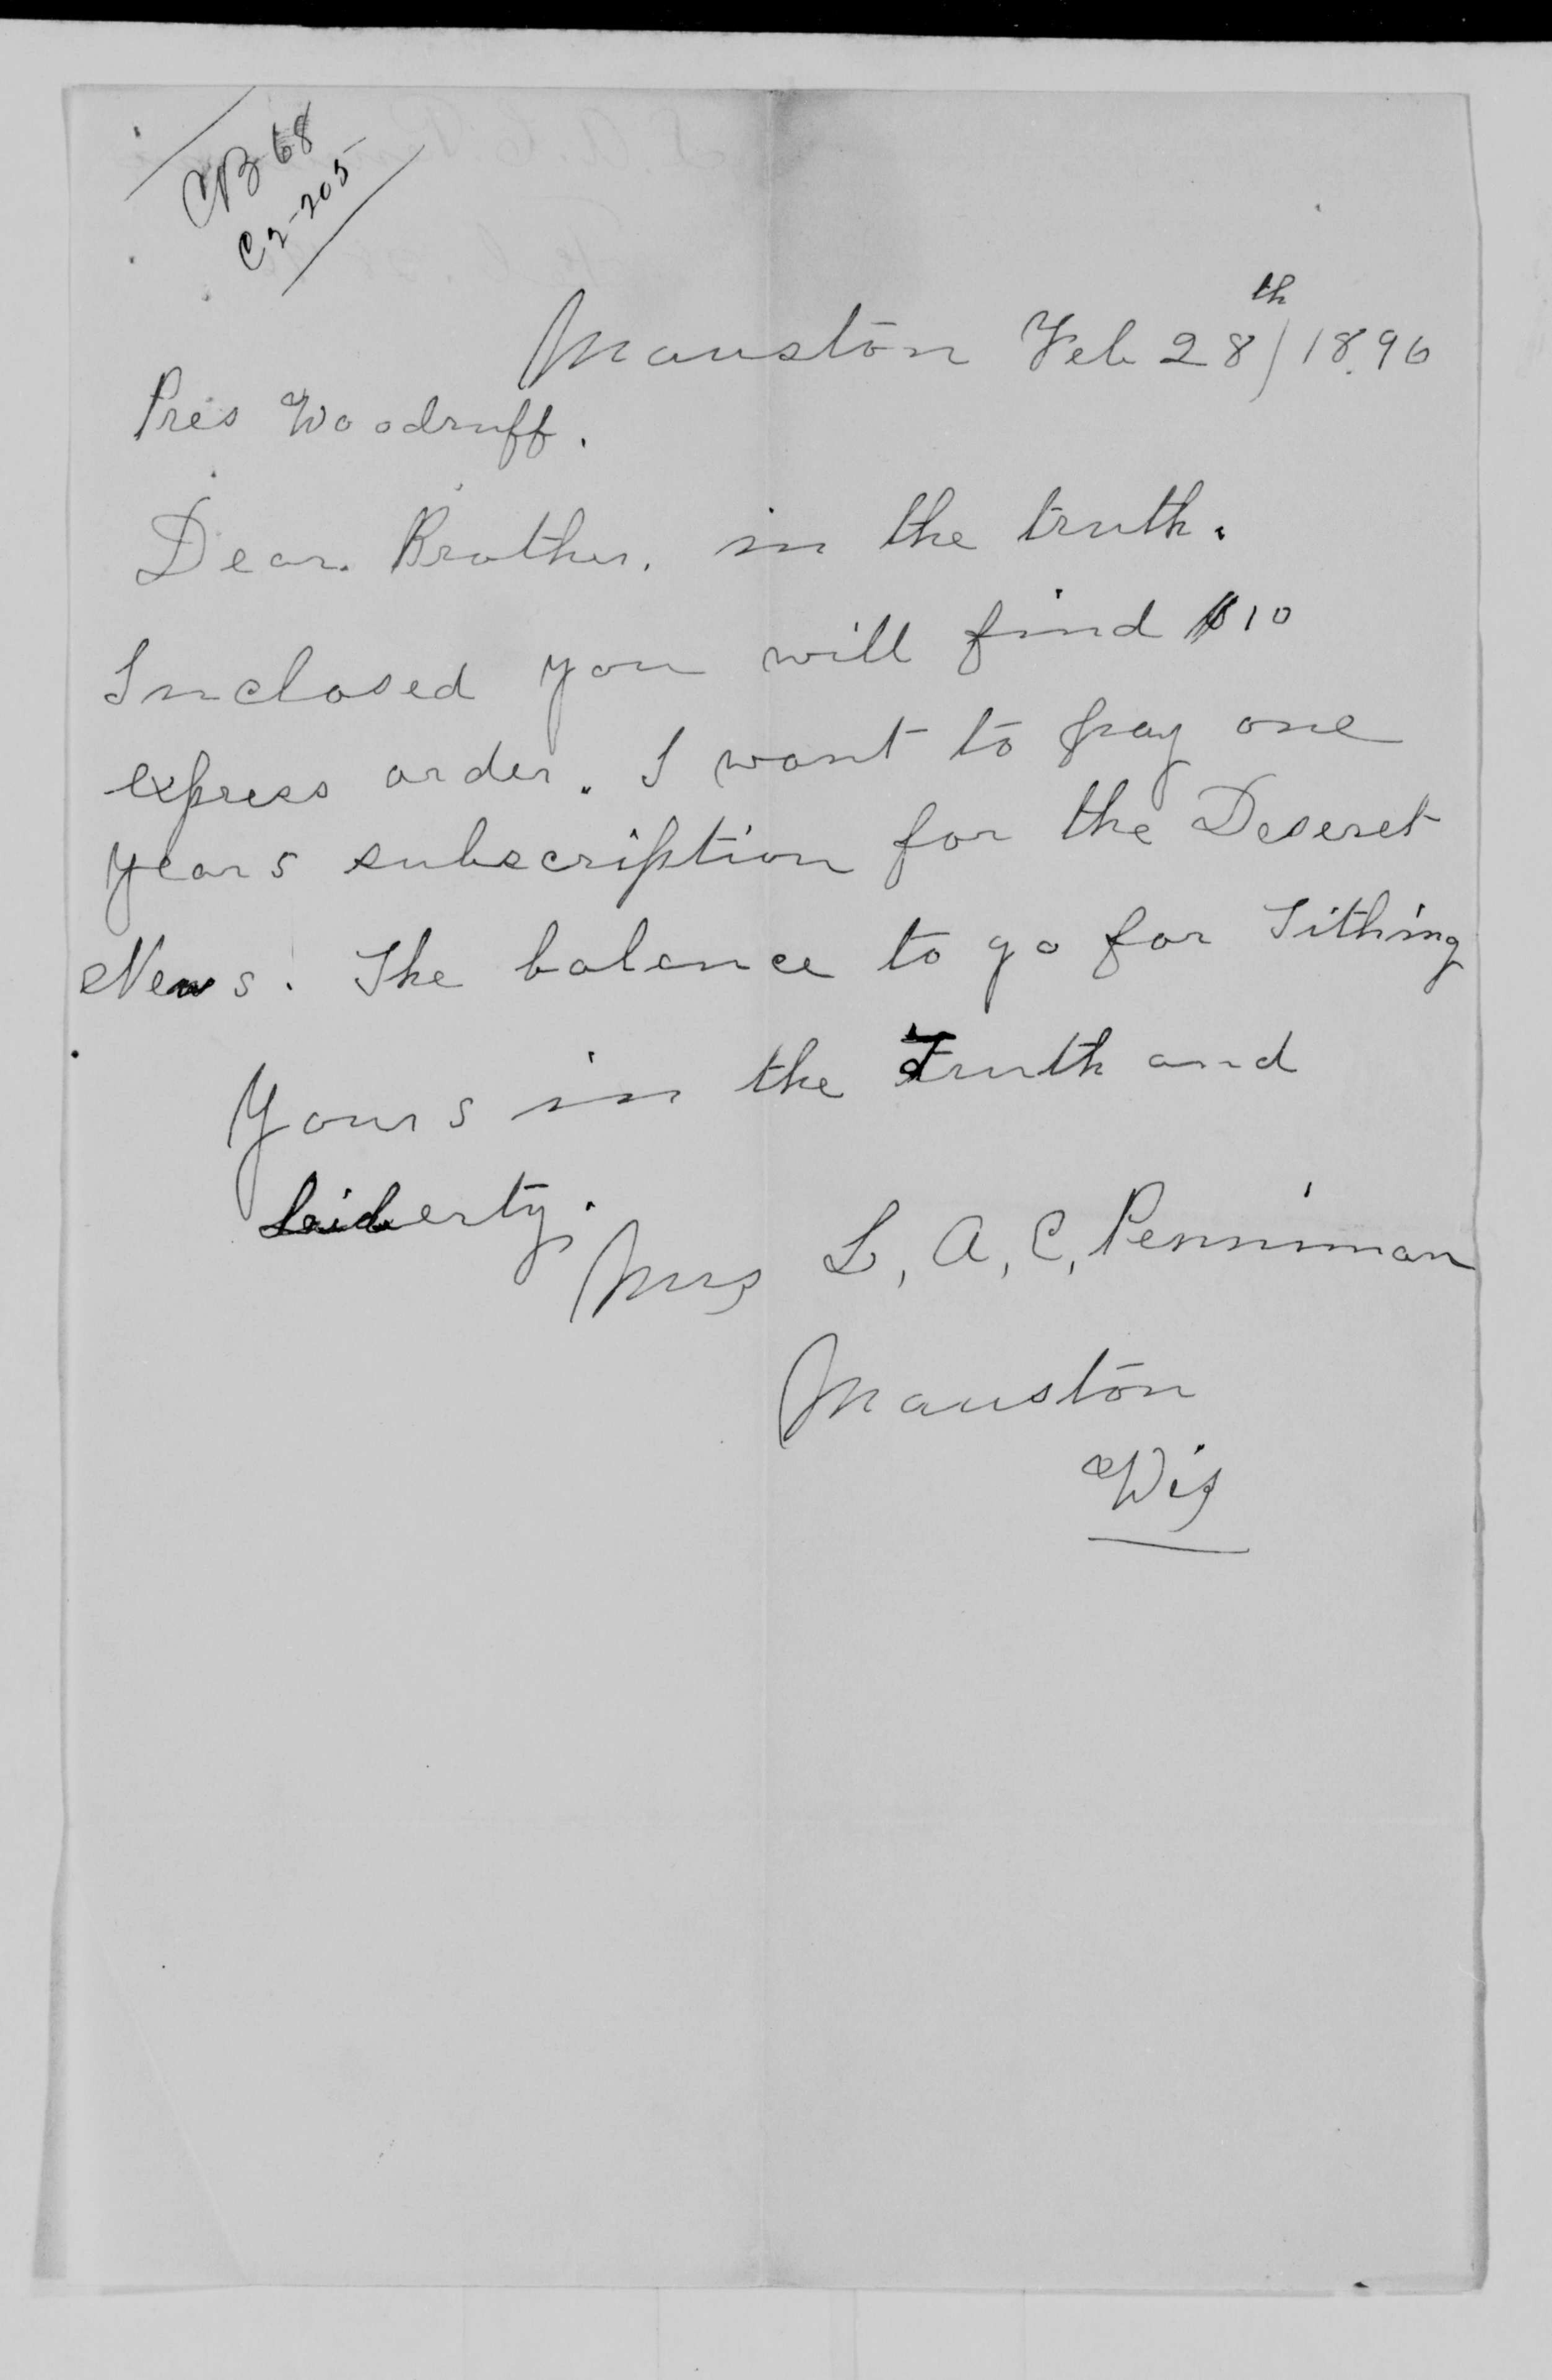 CB-68
C2-205
Mauston Feb 28th/1896
Pres Woodruff.
Dear. Brother. in the truth.
Inclosed you will find $10
express order. I want to pay one
years subscription for the Deseret
News. The balance to go for Tithing
Yours in the Truth and
Liberty.
Mrs L, A, C, Penniman
Mauston
Wis